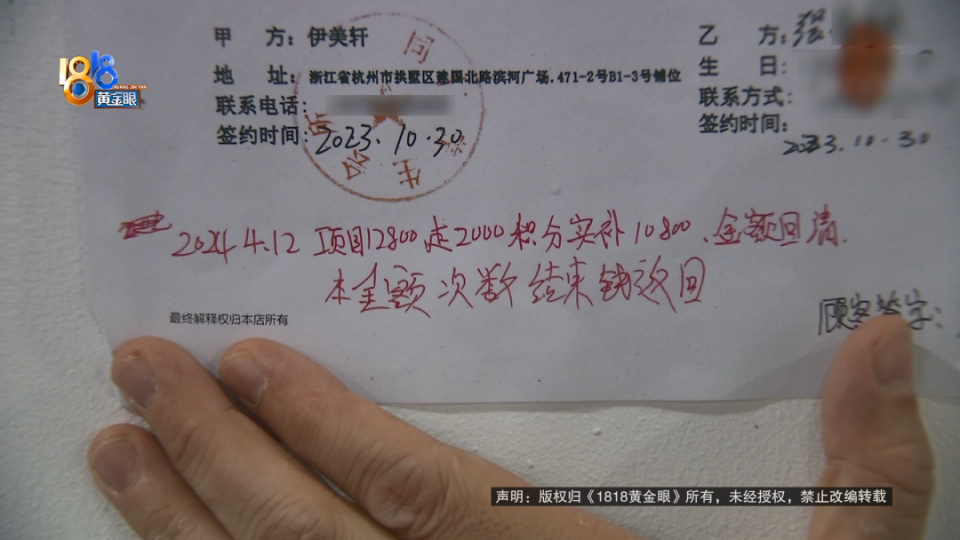 1818
黄金眼
甲 方：伊美轩
乙 方：
地 址：浙江省杭州市拱墅区建国北路滨河广场.471-2号B1-3号铺位
生 日：
联系电话：
联系方式：
签约时间：2023.10.30
签约时间：2023.10.30
2024.4.12 项目12800,走2000积分实补10800、金额回清.
本金额次数结束钱返回
最终解释权归本店所有
顾客签字：
声明：版权归《1818黄金眼》所有，未经授权，禁止改编转载